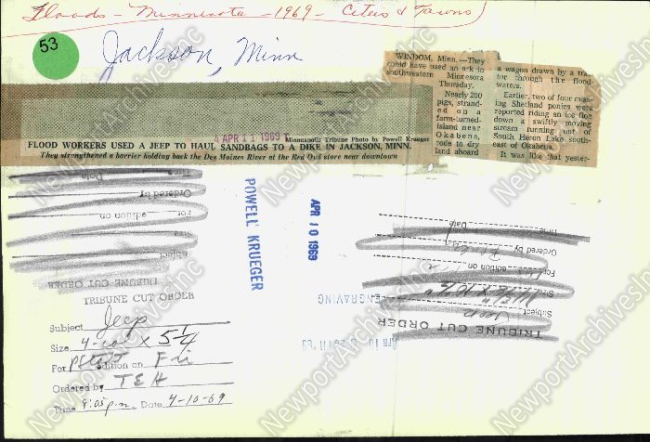 Floods - Minnesota - 1969 - Cities & Towns
53
Jackson, Minn
WINDOM, Minn.—They
could have used an ark in
southwestern Minnesota
Thursday.
Nearly 200
pigs, strand-
ed on a
farm-turned-
island near
Okabena,
rode to dry
land aboard
a wagon drawn by a tra-
tor through the flood-
waters.
Earlier, two of four roam-
ing Shetland ponies were
reported riding an ice floe
down a swiftly moving
stream running out of
South Heron Lake south-
east of Okabena.
It was like that yester-
APR 11 1969
Minneapolis Tribune Photo by Powell Krueger
FLOOD WORKERS USED A JEEP TO HAUL SANDBAGS TO A DIKE IN JACKSON, MINN.
They strengthened a barrier holding back the Des Moines River at the Red Owl store near downtown
Date
Ordered by
For edition on
Subject
TRIBUNE CUT ORDER
POWELL KRUEGER
APR 10 1969
ENGRAVING
Time Date
Ordered by
For edition on
Size
Subject Jeep
TRIBUNE CUT ORDER
TRIBUNE CUT ORDER
Subject Jeep
Size 4-col x 5 1/4
For edition on Fri
Ordered by TEH
Time 8:05 p.m. Date 4-10-69
NewportArchivesInc